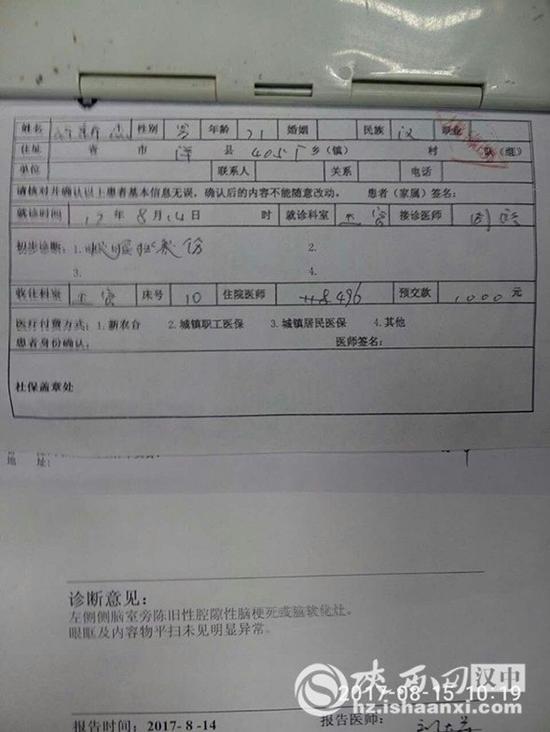 姓名 性别 男 年龄 71 婚姻 民族 汉 职业
住址 省 市 洋 县 405厂 乡(镇) 村 队(组)
单位 联系人 关系 电话
请核对并确认以上患者基本信息无误,确认后的内容不能随意改动。 患者(家属)签名:
就诊时间 17 年 8 月 14 日 时 就诊科室 五官 接诊医师
初步诊断:1. 2.
3. 4.
收住科室 五官 床号 10 住院医师 预交款 1000 元
医疗付费方式:1.新农合 2.城镇职工医保 3.城镇居民医保 4.其他
患者身份确认: 医师签名:
社保盖章处
地 址:
诊断意见:
左侧侧脑室旁陈旧性腔隙性脑梗死或脑软化灶。
眼眶及内容物平扫未见明显异常。
陕西网 汉中
2017-08-15 10:19
hz.ishaanxi.com
报告时间:2017-8-14 报告医师: